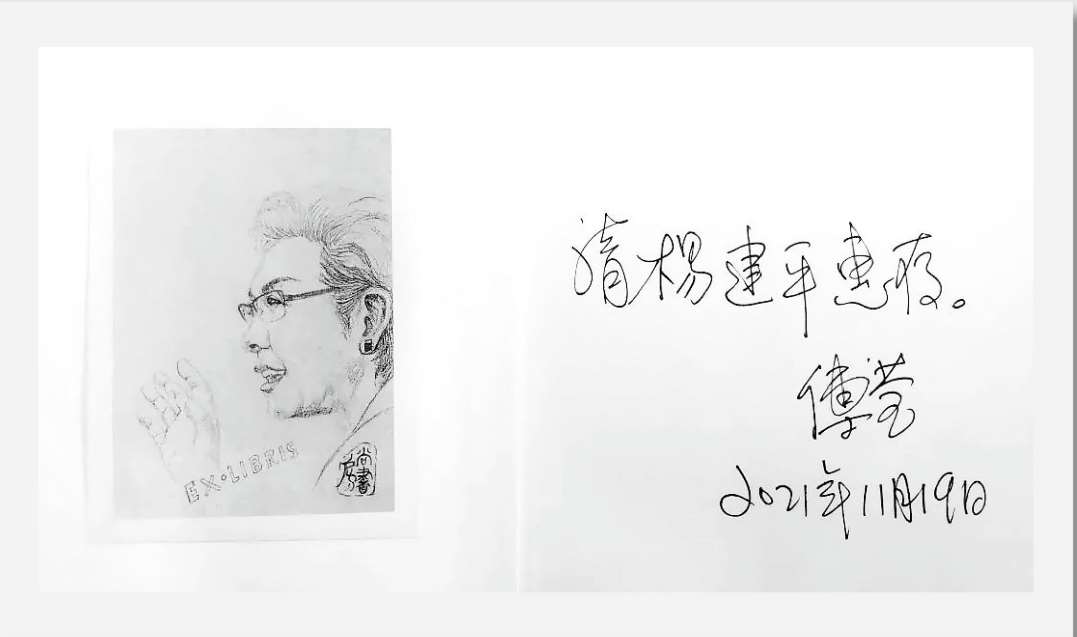 EX·LIBRIS
尚書房
请杨建平惠存。
傅莹
2021年11月19日